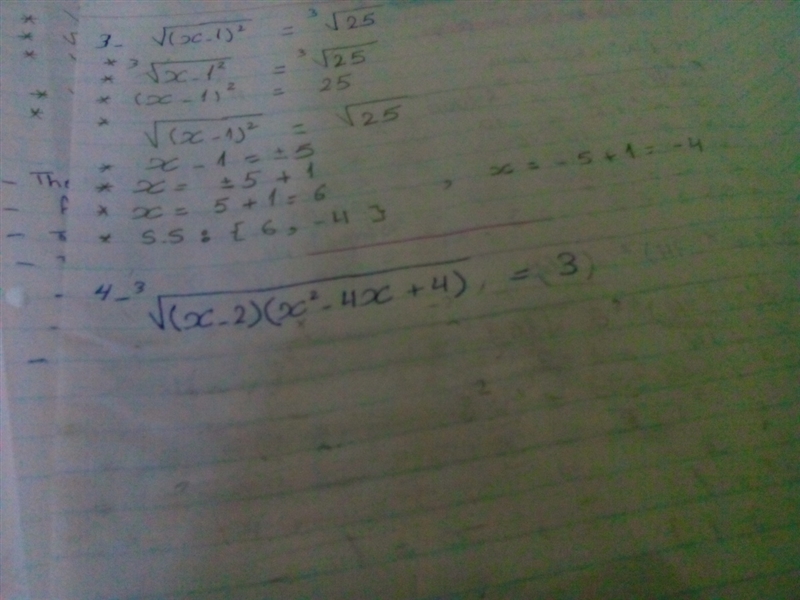 3- √(x-1)² = ³√25
* ³√x-1² = ³√25
* (x-1)² = 25
* √(x-1)² = √25
* x - 1 = ±5
* x = ±5 + 1
* x = 5 + 1 = 6 , x = -5 + 1 = -4
* S.S : { 6 , -4 }
- The
4- ³√(x-2)(x²-4x+4) = 3